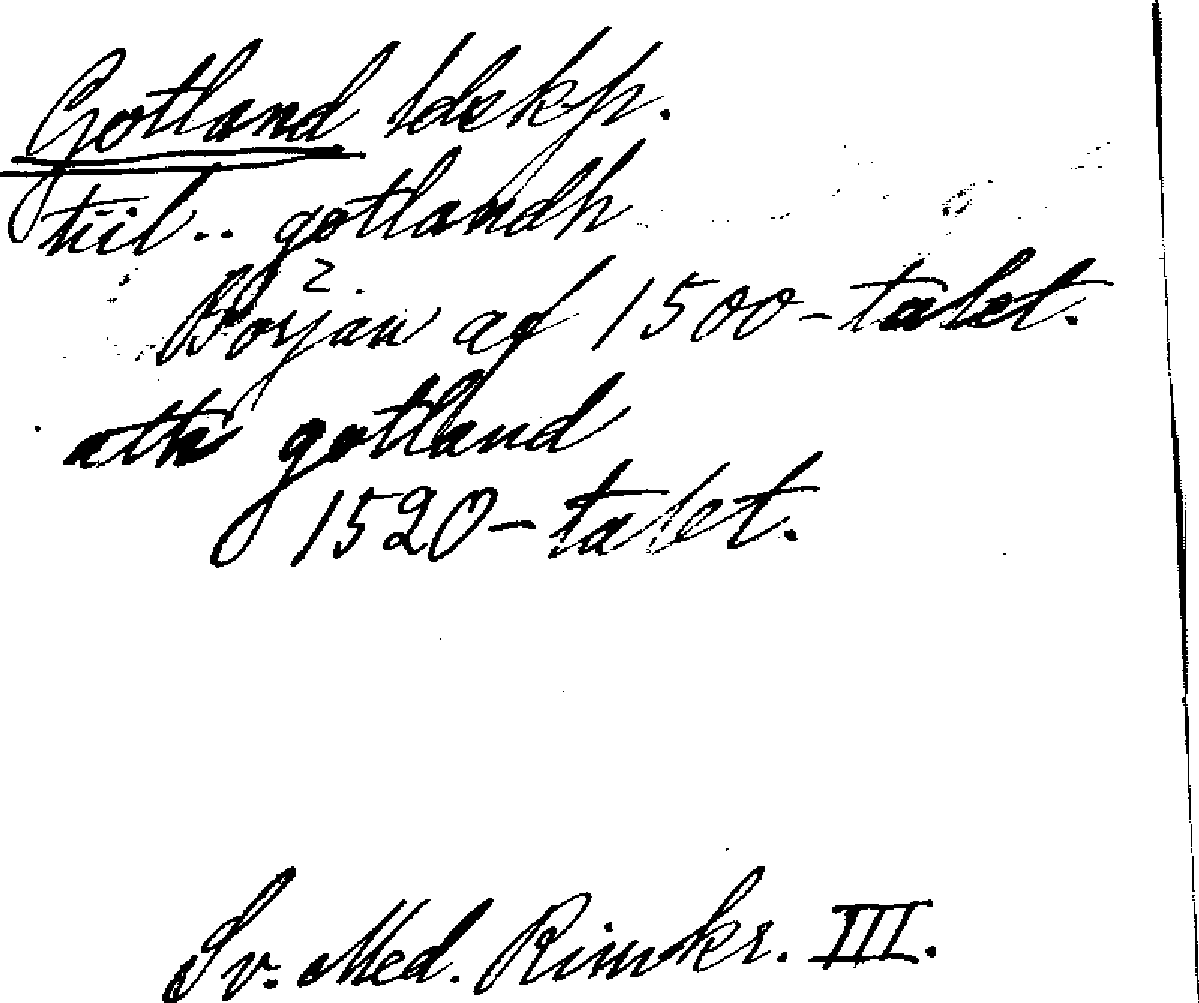 Gotland ldskp.
tiil.. gotlandh
2.
Början af 1500-talet.
atk gotland
1520-talet.
Sv. Med. Rimkr. III.